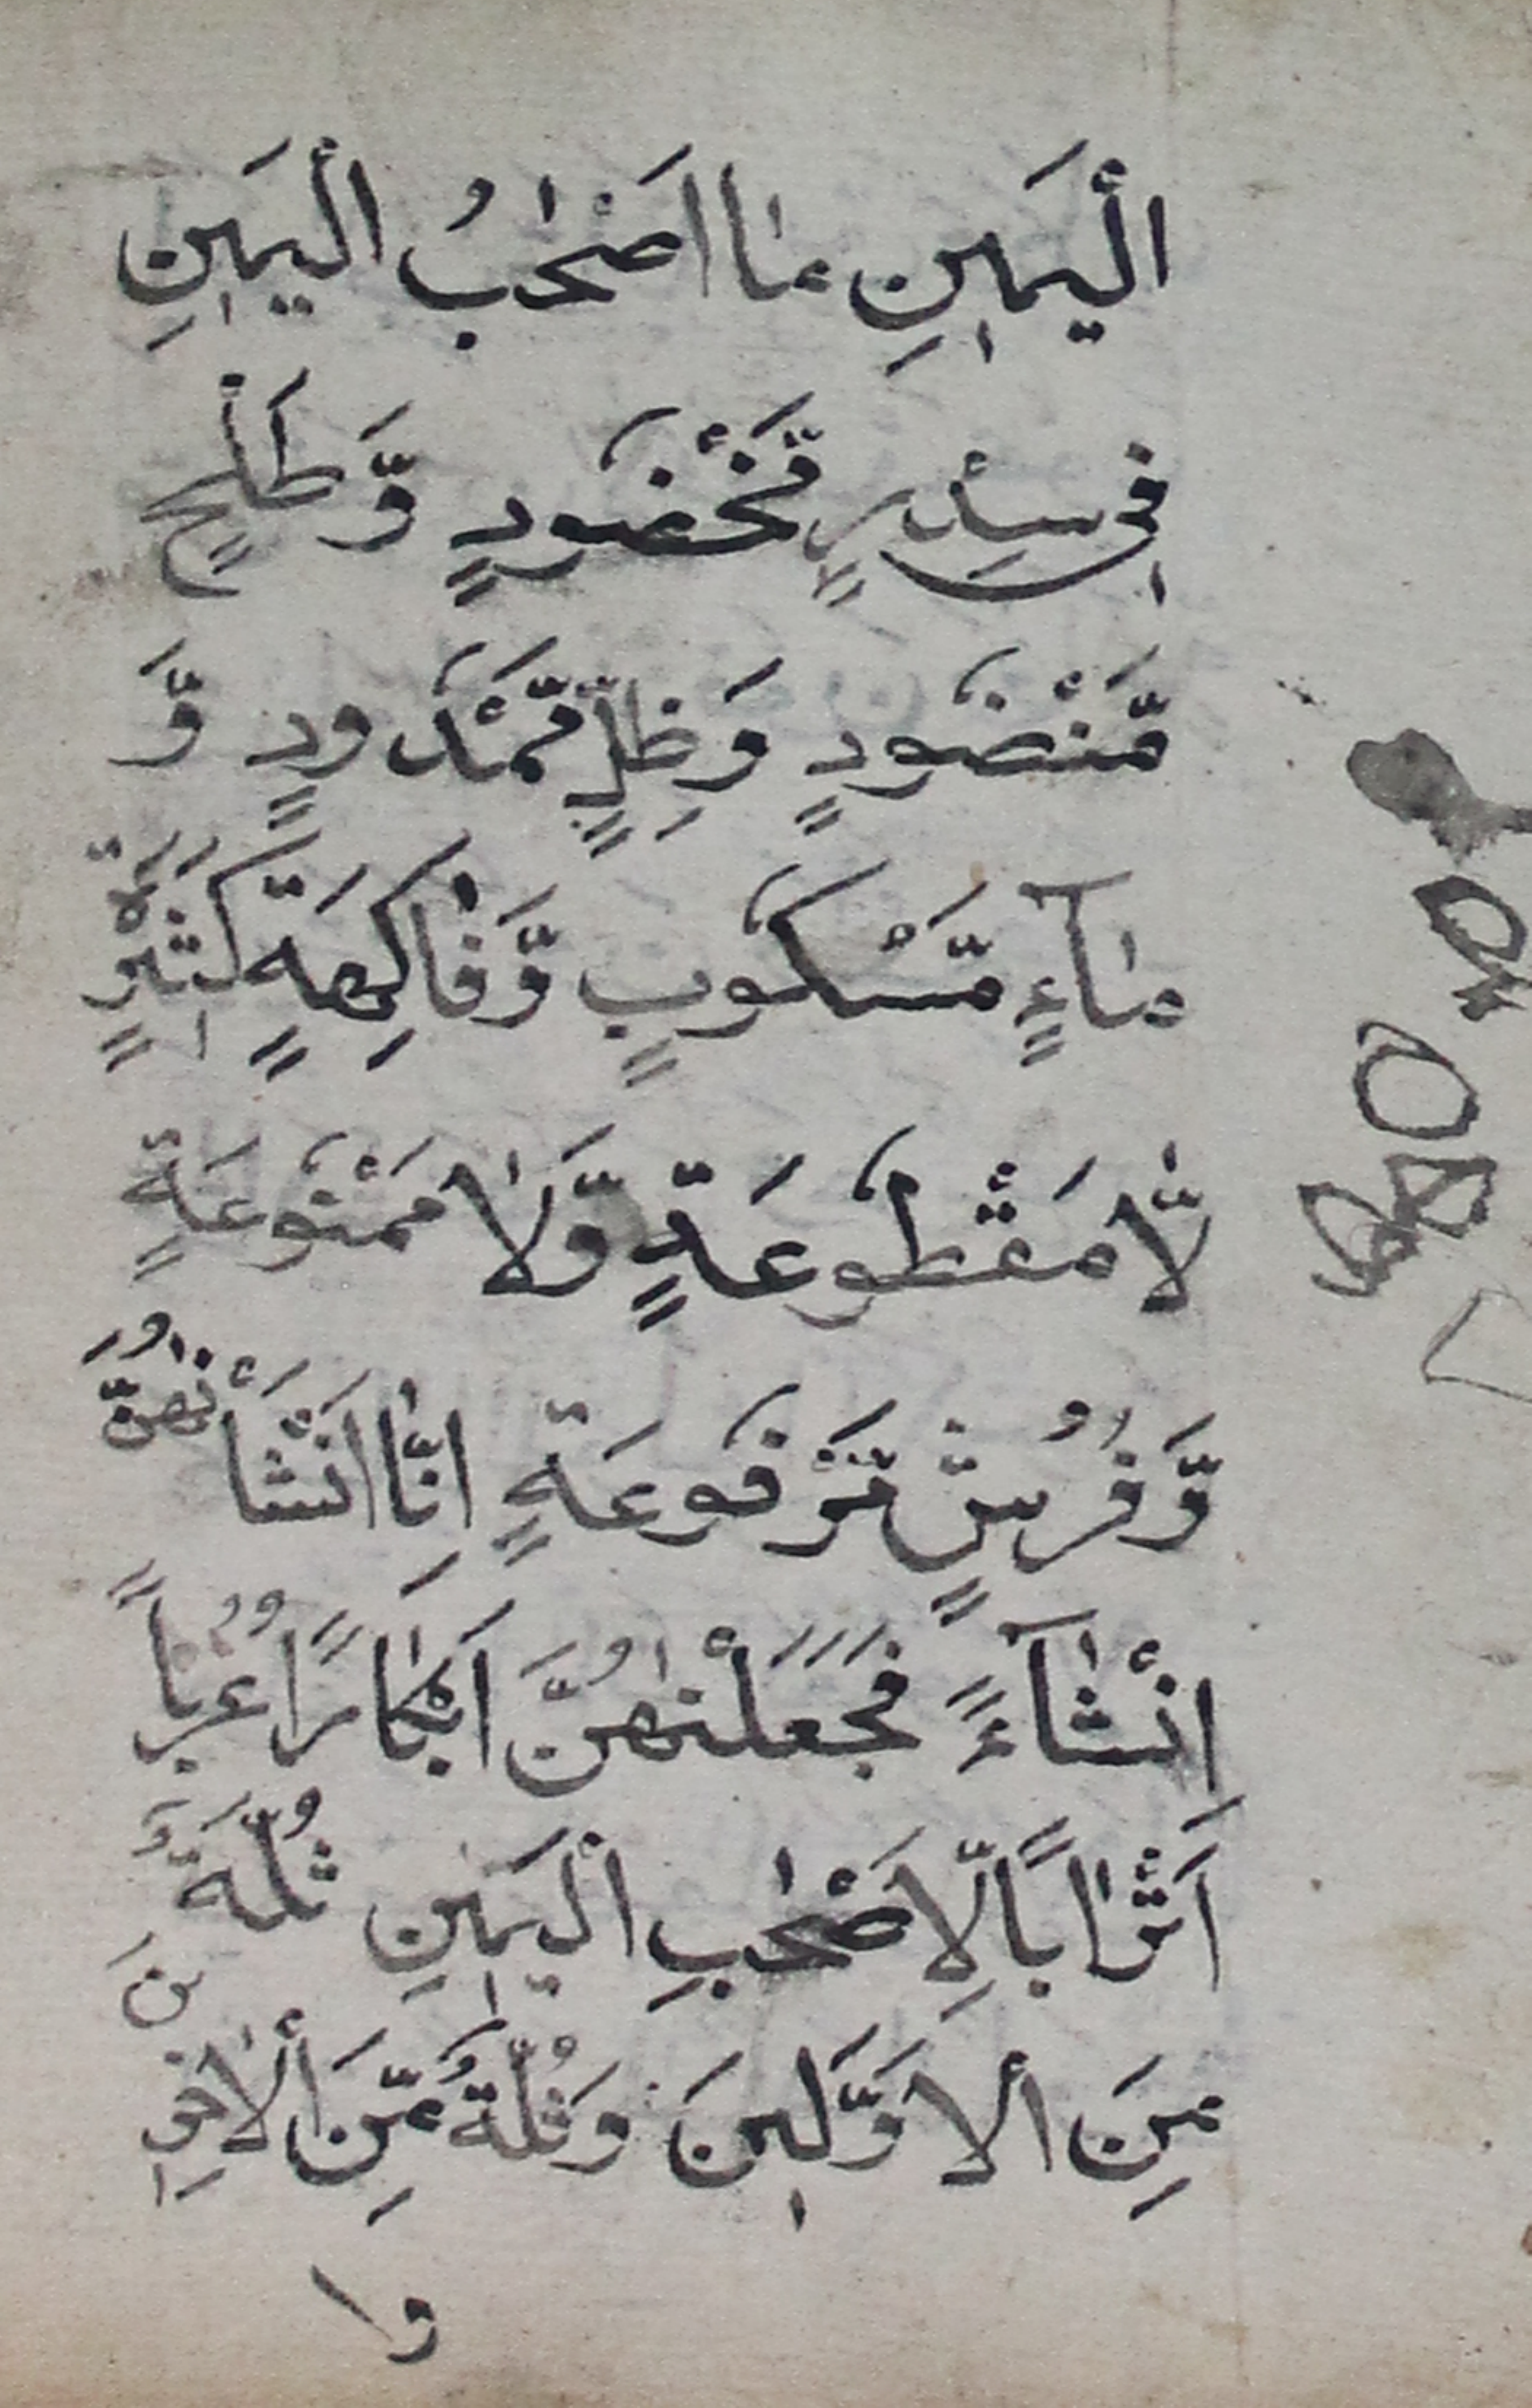 الْيَمِينِ مَا اَصْحٰبُ الْيَمِينِ
فِي سِدْرٍ مَّخْضُودٍ وَّطَلْحٍ
مَّنْضُودٍ وَظِلٍّ مَّمْدُودٍ وَّ
مَآءٍ مَّسْكُوبٍ وَّفَاكِهَةٍ كَثِيرَةٍ
لَّا مَقْطُوعَةٍ وَّلَا مَمْنُوعَةٍ
وَّفُرُشٍ مَّرْفُوعَةٍ اِنَّا اَنْشَأْنٰهُنَّ
اِنْشَآءً فَجَعَلْنٰهُنَّ اَبْكَارًا عُرُبًا
اَتْرَابًا لِّاَصْحٰبِ الْيَمِينِ ثُلَّةٌ
مِنَ الْاَوَّلِينَ وَثُلَّةٌ مِّنَ الْاٰخِرِينَ
وا